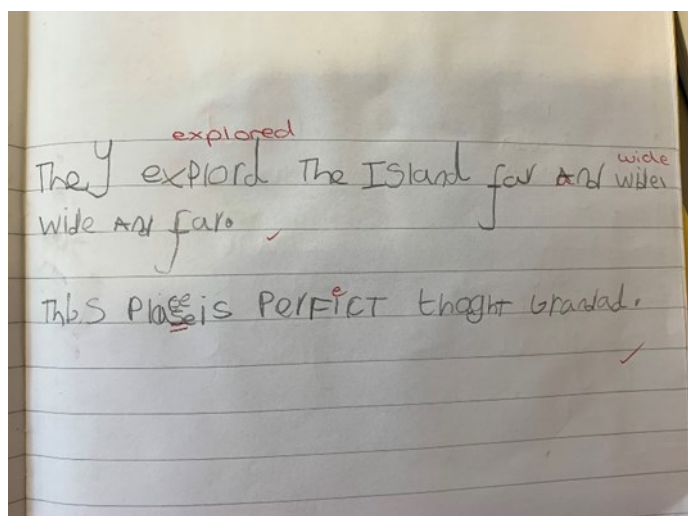 explored
They explord The ISland far And wide
wide And far.
This Plase is PerFiCT thoght Grandad.